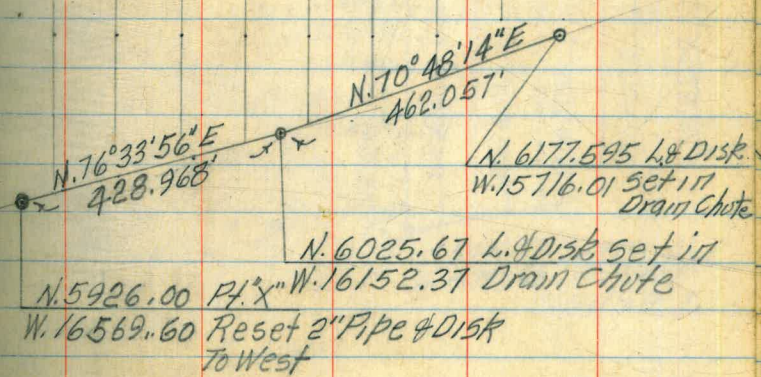 N.70°48'14"E
462.057'
N.76°33'56"E
428.968'
N. 6177.595 L.&Disk
W.15716.01 Set in
Drain Chute
N. 6025.67 L.&Disk Set in
W.16152.37 Drain Chute
N.5926.00 Pt."X"
W.16569.60 Reset 2" Pipe & Disk
To West